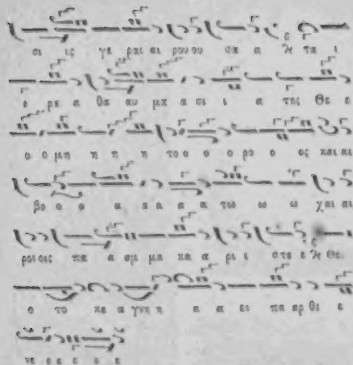 σι ις γε ραι αι ρου ου σα α ϗ τα ι
ε ρε α θα αυ μα α σι ι α της Θε ε
ο ο μη η η η το ο ο ρο ο ος και αι
βο ο ο α α α α α τω ω ω χαι αι
ροι οις πα α αμ μα κα α ρι ι στε ε ϗ Θε
ο το κε α γνη η α α ει πα αρ θε ε
νε ε ε ε ε